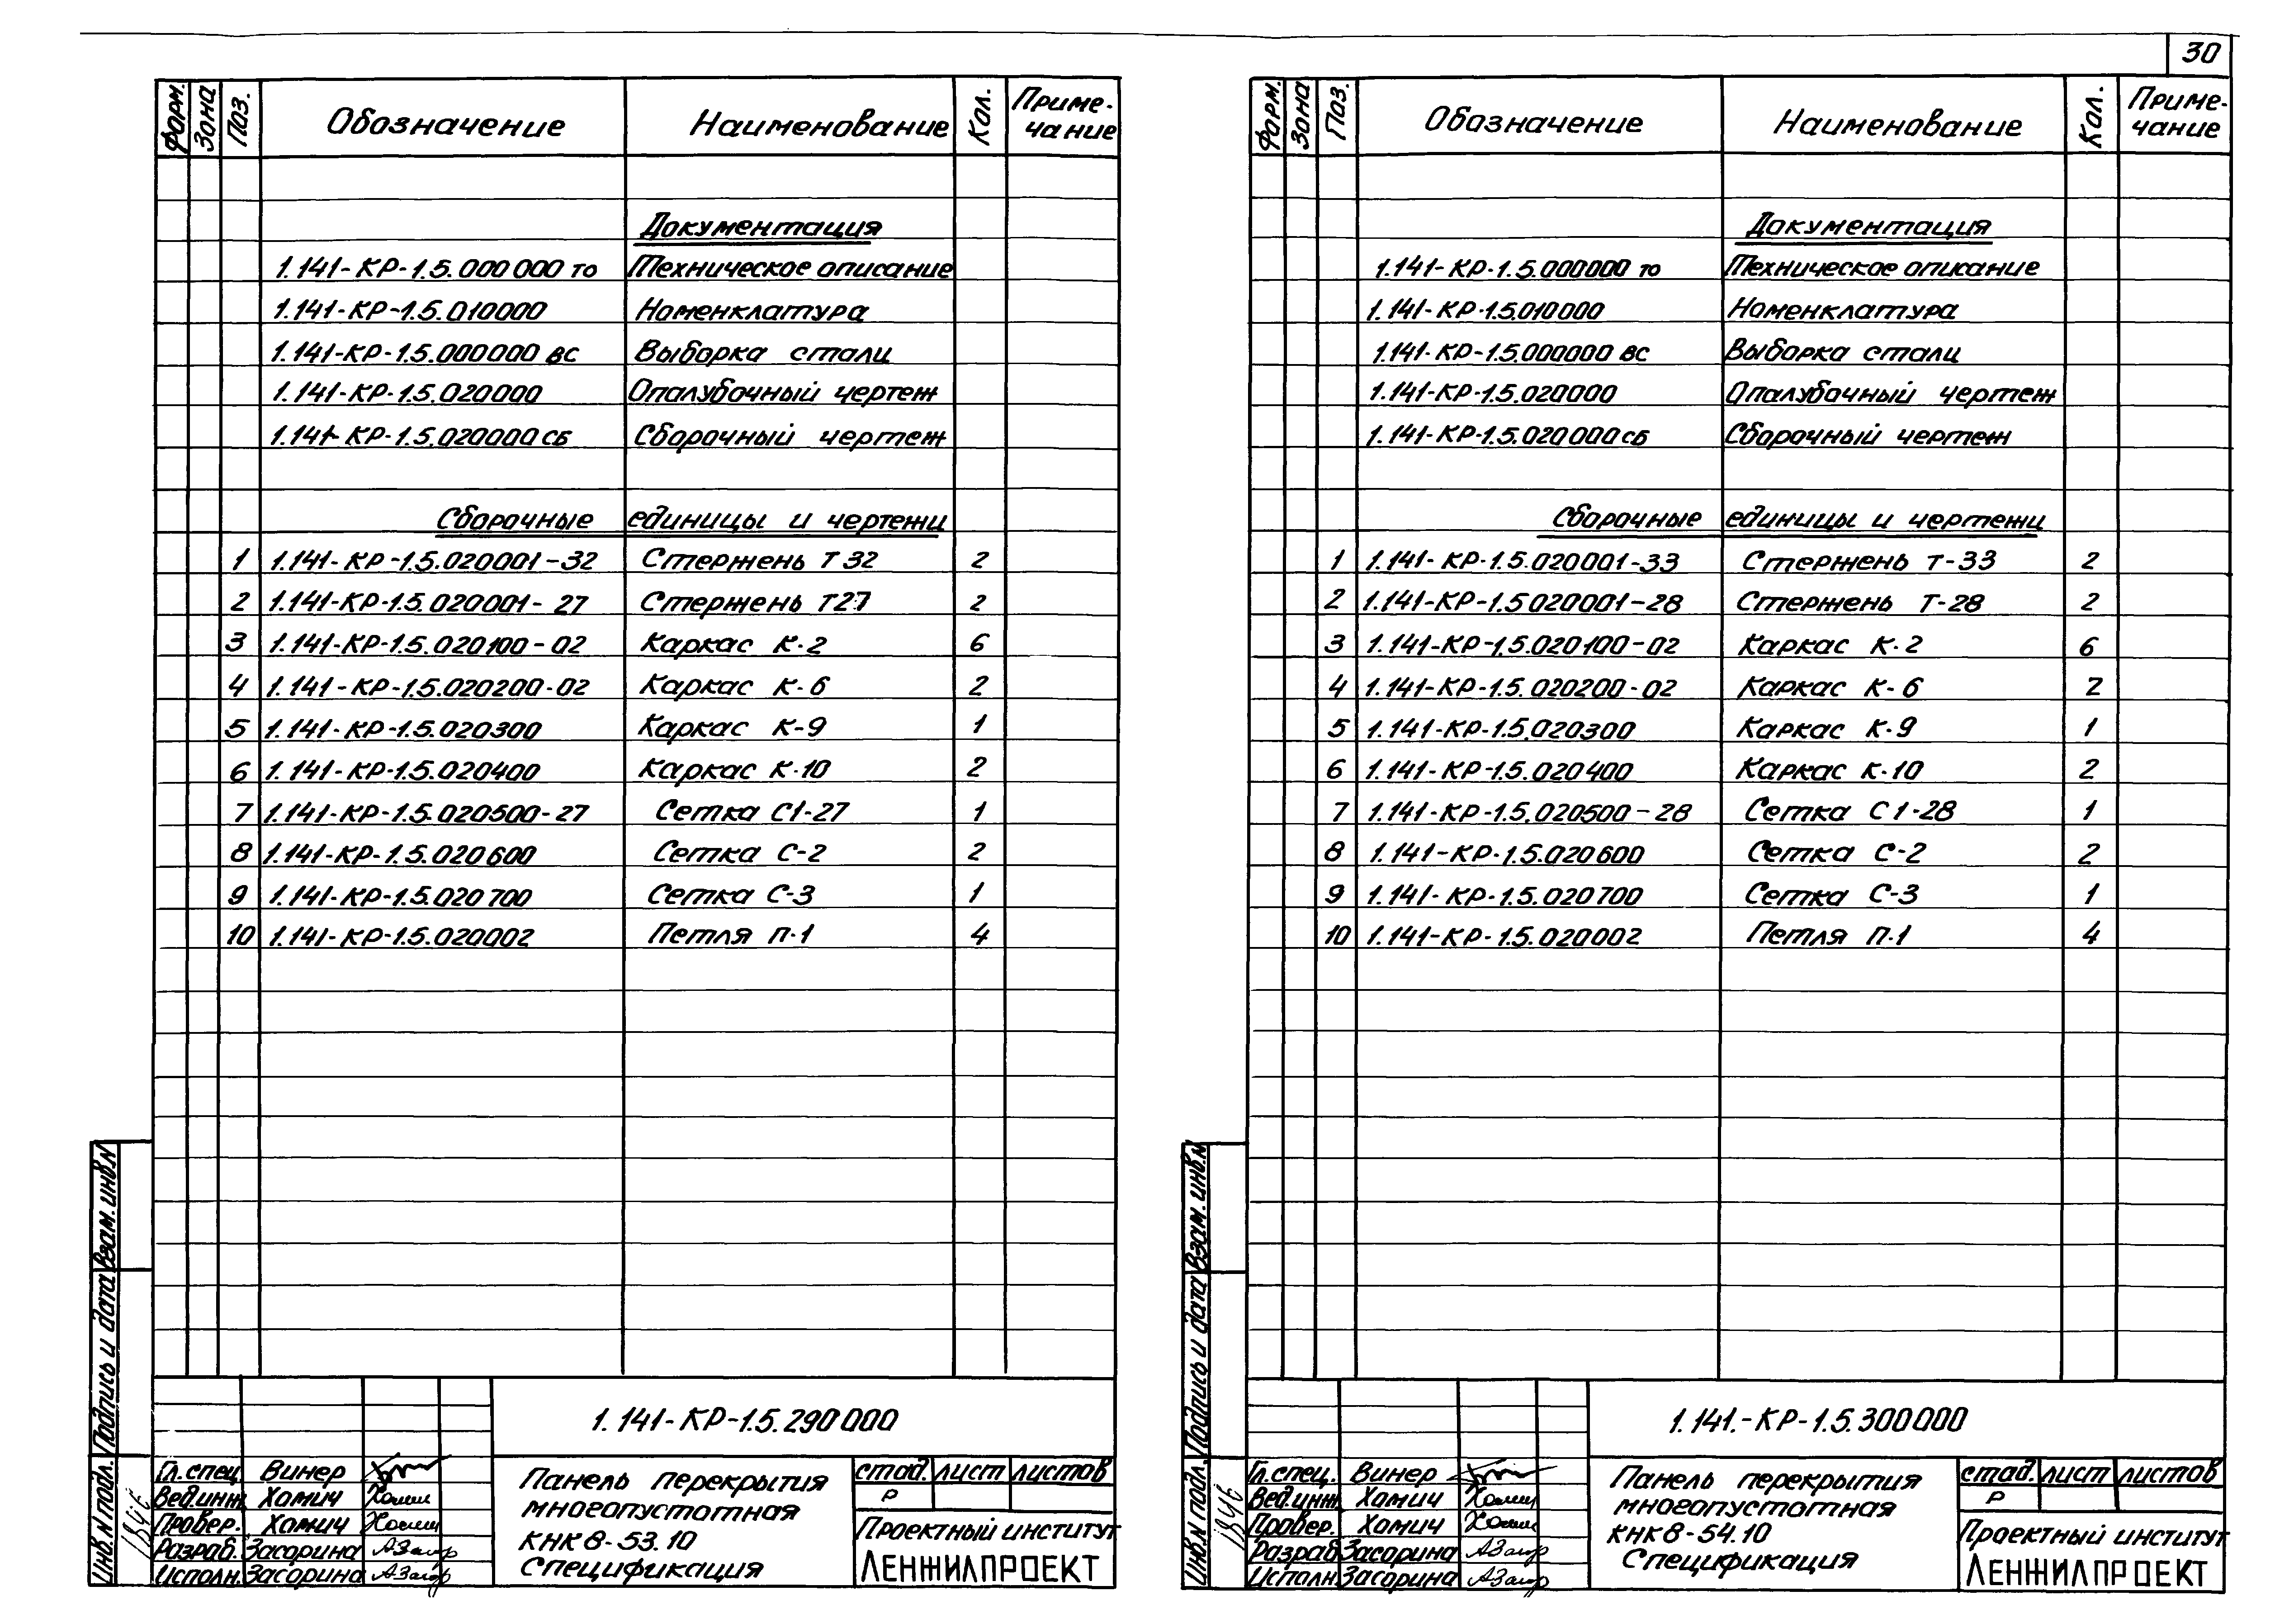 30
Форм. Зона Поз. Обозначение Наименование Кол. Приме-
чание
Документация
1.141-КР-1.5.000000 ТО Техническое описание
1.141-КР-1.5.010000 Номенклатура
1.141-КР-1.5.000000 ВС Выборка стали
1.141-КР-1.5.020000 Опалубочный чертеж
1.141-КР-1.5.020000 СБ Сборочный чертеж
Сборочные единицы и чертежи
1 1.141-КР-1.5.020001-32 Стержень Т 32 2
2 1.141-КР-1.5.020001-27 Стержень Т27 2
3 1.141-КР-1.5.020100-02 Каркас К-2 6
4 1.141-КР-1.5.020200-02 Каркас К-6 2
5 1.141-КР-1.5.020300 Каркас К-9 1
6 1.141-КР-1.5.020400 Каркас К-10 2
7 1.141-КР-1.5.020500-27 Сетка С1-27 1
8 1.141-КР-1.5.020600 Сетка С-2 2
9 1.141-КР-1.5.020700 Сетка С-3 1
10 1.141-КР-1.5.020002 Петля П-1 4
Взам. инв.N
Подпись и дата
Инв.N подл.
1846
1.141-КР-1.5.290000
Гл.спец. Винер
Вед.инж. Хомич
Провер. Хомич
Разраб. Засорина
Исполн. Засорина
Панель перекрытия
многопустотная
КНК8-53.10
Спецификация
стад. лист листов
Р
Проектный институт
ЛЕНЖИЛПРОЕКТ
Форм. Зона Поз. Обозначение Наименование Кол. Приме-
чание
Документация
1.141-КР-1.5.000000 ТО Техническое описание
1.141-КР-1.5.010000 Номенклатура
1.141-КР-1.5.000000 ВС Выборка стали
1.141-КР-1.5.020000 Опалубочный чертеж
1.141-КР-1.5.020000 СБ Сборочный чертеж
Сборочные единицы и чертежи
1 1.141-КР-1.5.020001-33 Стержень Т-33 2
2 1.141-КР-1.5020001-28 Стержень Т-28 2
3 1.141-КР-1.5.020100-02 Каркас К-2 6
4 1.141-КР-1.5.020200-02 Каркас К-6 2
5 1.141-КР-1.5.020300 Каркас К-9 1
6 1.141-КР-1.5.020400 Каркас К-10 2
7 1.141-КР-1.5.020500-28 Сетка С1-28 1
8 1.141-КР-1.5.020600 Сетка С-2 2
9 1.141-КР-1.5.020700 Сетка С-3 1
10 1.141-КР-1.5.020002 Петля П-1 4
Взам. инв.N
Подпись и дата
Инв.N подл.
1846
1.141.-КР-1.5.300000
Гл.спец. Винер
Вед.инж. Хомич
Провер. Хомич
Разраб. Засорина
Исполн. Засорина
Панель перекрытия
многопустотная
КНК8-54.10
Спецификация
стад. лист листов
Р
Проектный институт
ЛЕНЖИЛПРОЕКТ